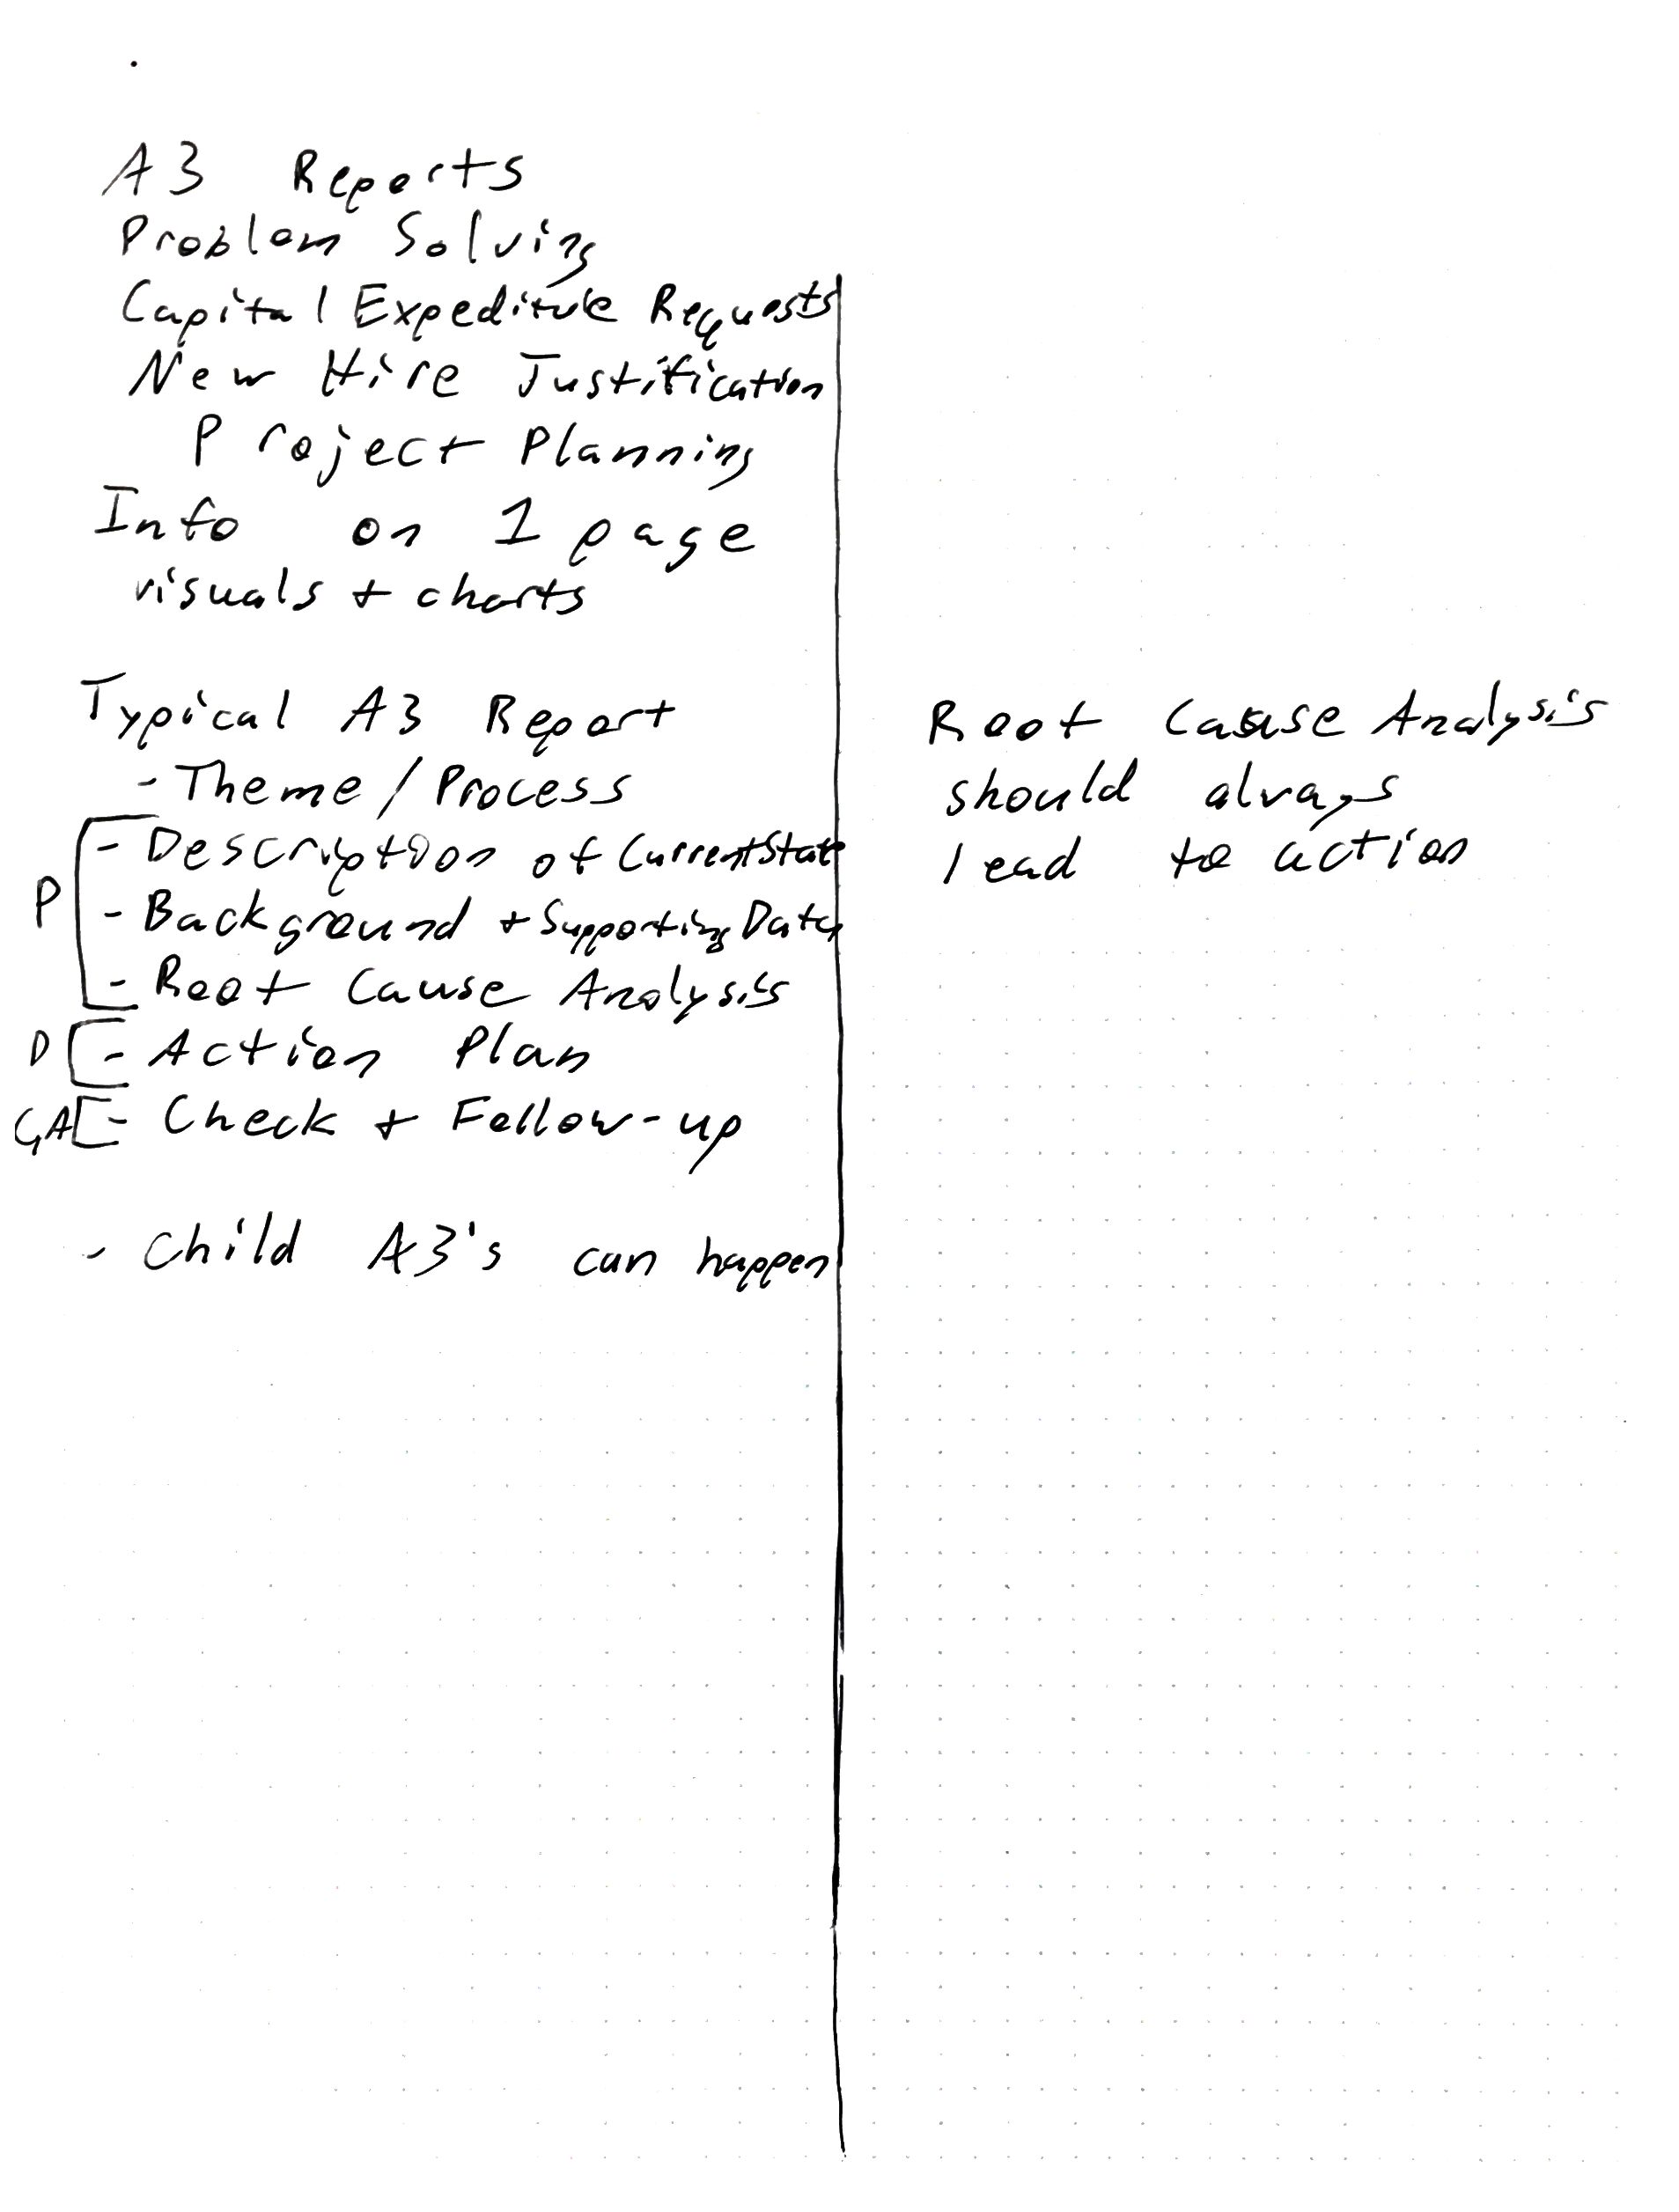 A3 Reports
Problem Solving
Capital Expediture Requests
New Hire Justification
Project Planning
Info on 1 page
visuals + charts
Typical A3 Report
- Theme / Process
P
- Description of Current State
- Background + Supporting Data
- Root Cause Analysis
D - Action Plan
C,A - Check + Follow-up
- Child A3's can happen
Root Cause Analysis
should always
lead to action